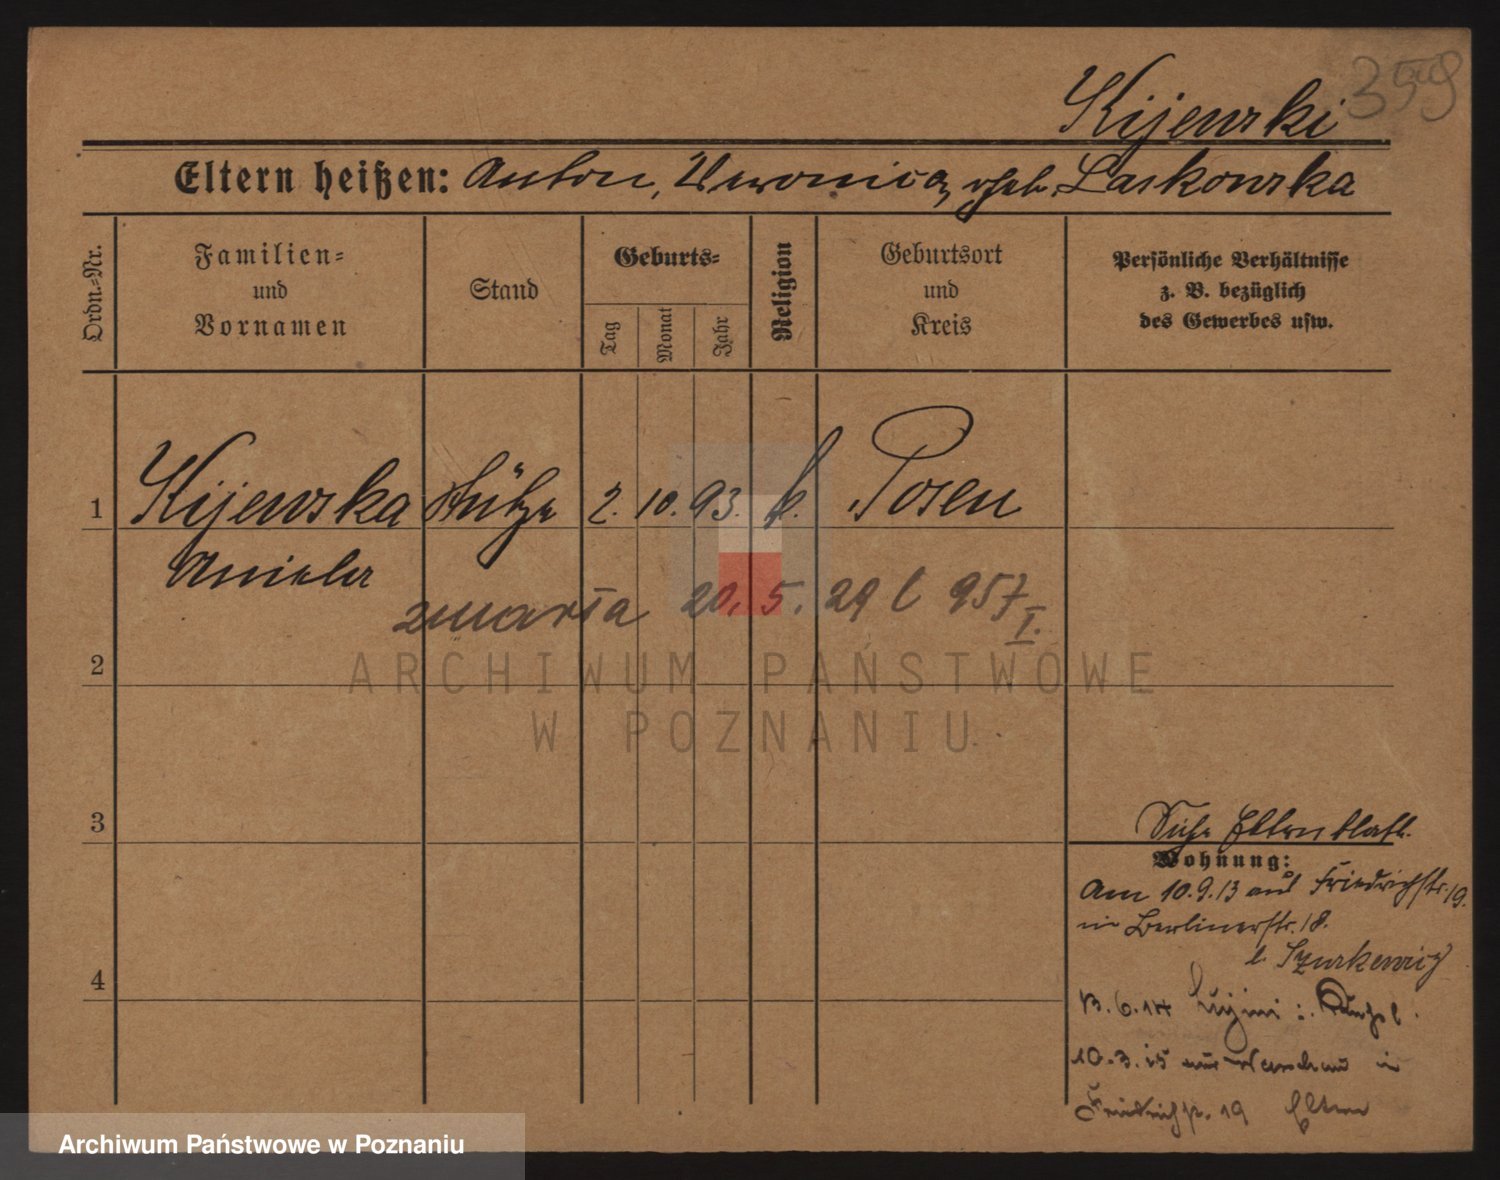 359
Kijewski
Eltern heißen: Anton, Veronica, geb. Laskowska
Ordn.-Nr.
Familien-
und
Vornamen
Stand
Geburts-
Tag
Monat
Jahr
Religion
Geburtsort
und
Kreis
Persönliche Verhältnisse
z. B. bezüglich
des Gewerbes usw.
1 Kijewska Stütze 2. 10. 93. k. Posen
Aniela
zmarła 20. 5. 29 l 957/I.
2
ARCHIWUM PAŃSTWOWE
W POZNANIU
3
Siehe Elternblatt.
Wohnung:
Am 10.9.13 aus Friedrichstr. 19.
in Berlinerstr. 18.
b.
4
13.6.14
10.3.15 aus Warschau in
Friedrichstr. 19 Eltern
Archiwum Państwowe w Poznaniu